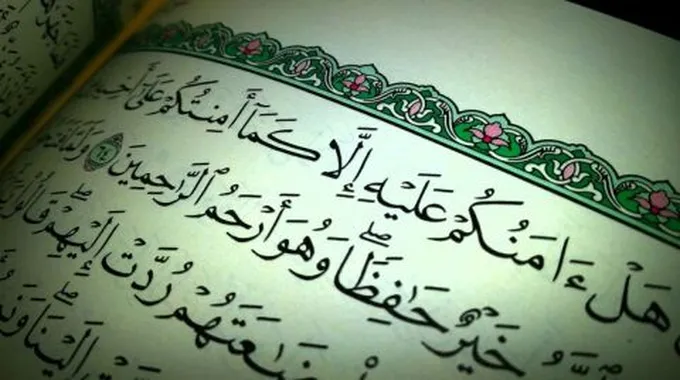 هَلْ ءَامَنُكُمْ عَلَيْهِ إِلَّا كَمَآ أَمِنتُكُمْ عَلَىٰٓ
خَيْرٌ حَٰفِظًا ۖ وَهُوَ أَرْحَمُ ٱلرَّٰحِمِينَ ٦٤ وَلَمَّا
بِضَٰعَتَهُمْ رُدَّتْ إِلَيْهِمْ ۖ قَالُوا۟
إِلَيْنَا ۖ